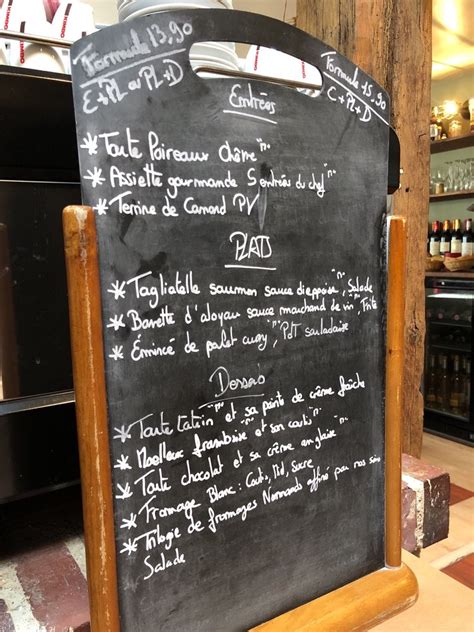 Formule 13,90
E+PL ou PL+D
Formule 15,90
E+PL+D
Entrées
* Tarte Poireaux chèvre "n"
* Assiette gourmande 5 entrées du chef "n"
* Terrine de Canard PV
PLATS
* Tagliatelle saumon sauce dieppoise "n", Salade
* Bavette d'aloyau sauce marchand de vin "n", Frite
* Émincé de poulet curry, PdT sautées
Desserts
* Tarte tatin "n" et sa pointe de crème fraîche
* Moelleux framboise "n" et son coulis "n"
* Tarte chocolat et sa crème anglaise "n"
* Fromage Blanc : Coulis, Miel, Sucre
* Trilogie de fromages Normands affiné par nos soins
Salade